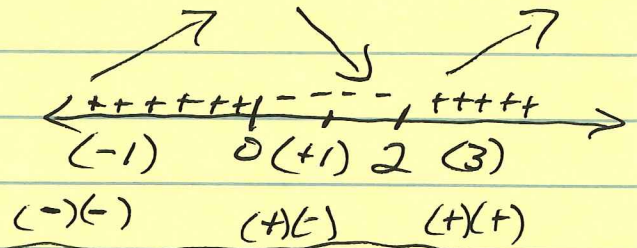 ++++++ - - - - - +++++
(-1) 0 (+1) 2 (3)
(-)(-) (+)(-) (+)(+)